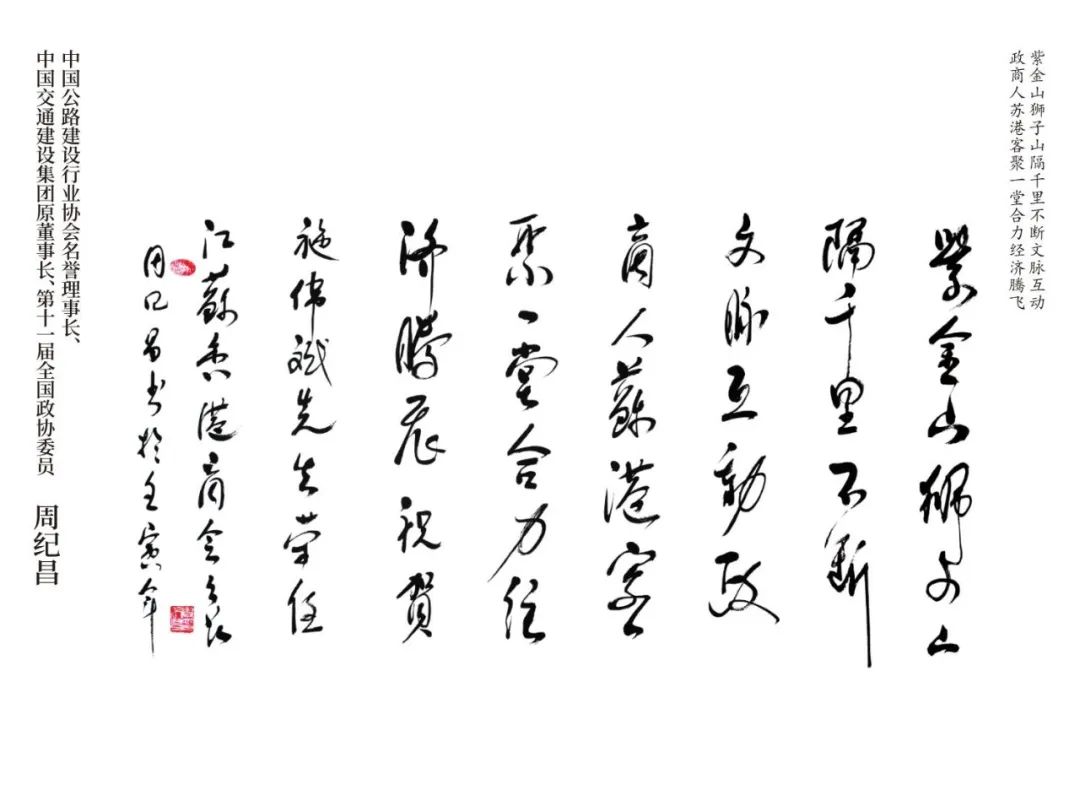 紫金山狮子山隔千里不断文脉互动
政商人苏港客聚一堂合力经济腾飞
紫金山獅子山
隔千里不断
文脉互動政
商人蘇港客
聚一堂合力经
济騰飛祝贺
施伟斌先生荣任
江蘇香港商会会长
周纪昌书於壬寅年
中国公路建设行业协会名誉理事长、
中国交通建设集团原董事长、第十一届全国政协委员 周纪昌